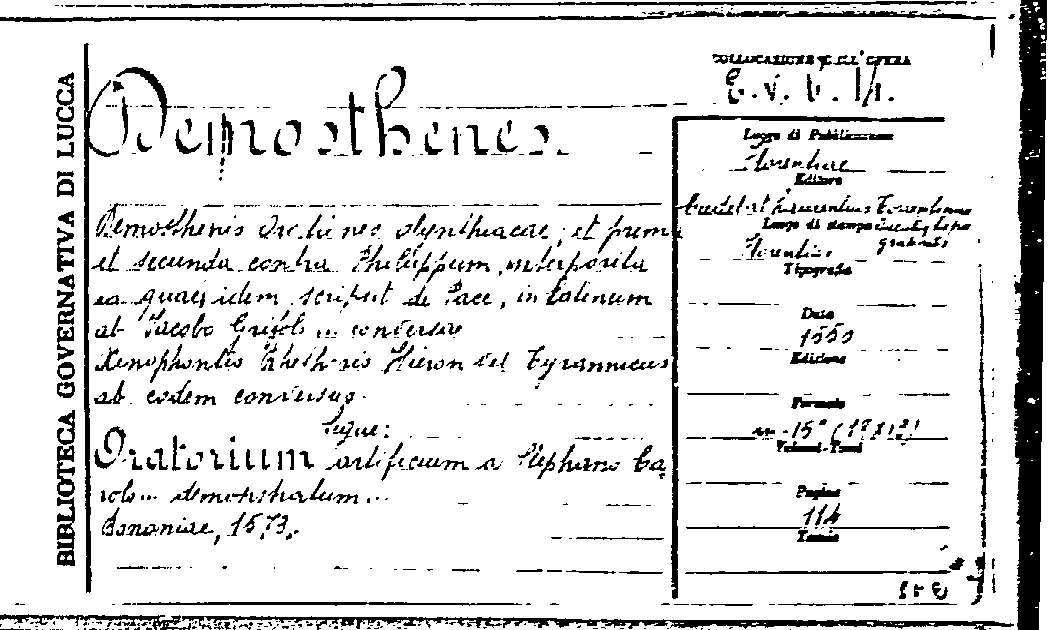 BIBLIOTECA GOVERNATIVA DI LUCCA
COLLOCAZIONE DELL'OPERA
E. V. b. 11.
Demosthenes.
Demosthenis Orationes olynthiacae, et prima
et secunda contra Philippum, interposita
ea quae idem scripsit de Pace, in latinum
ab Jacobo conversae
Xenophontis Rhethoris Hieron vel Tyrannicus
ab eodem conversus.
Segue:
Oratorium artificium a Stephano
demonstratum...
Bononiae, 1573.
Luogo di Pubblicazione
Florentiae
Editore
Laurentius
Luogo di stampa
Florentiae
Tipografia
Data
1550
Edizione
Formato
in-15°
Volumi-Tomi
Pagine
114
Tavole